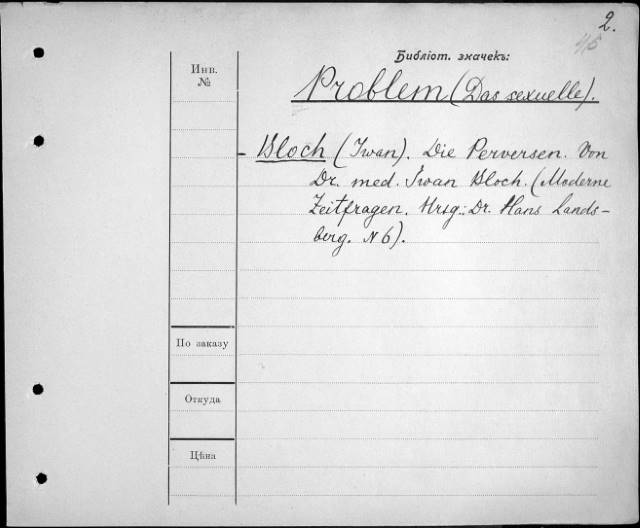 2.
45
Библіот. значекъ:
Инв.
№
Problem (Das sexuelle).
- Bloch (Iwan). Die Perversen. Von
Dr. med. Iwan Bloch. (Moderne
Zeitfragen. Hrsg.: Dr. Hans Lands-
berg. N 6).
По заказу
Откуда
Цѣна